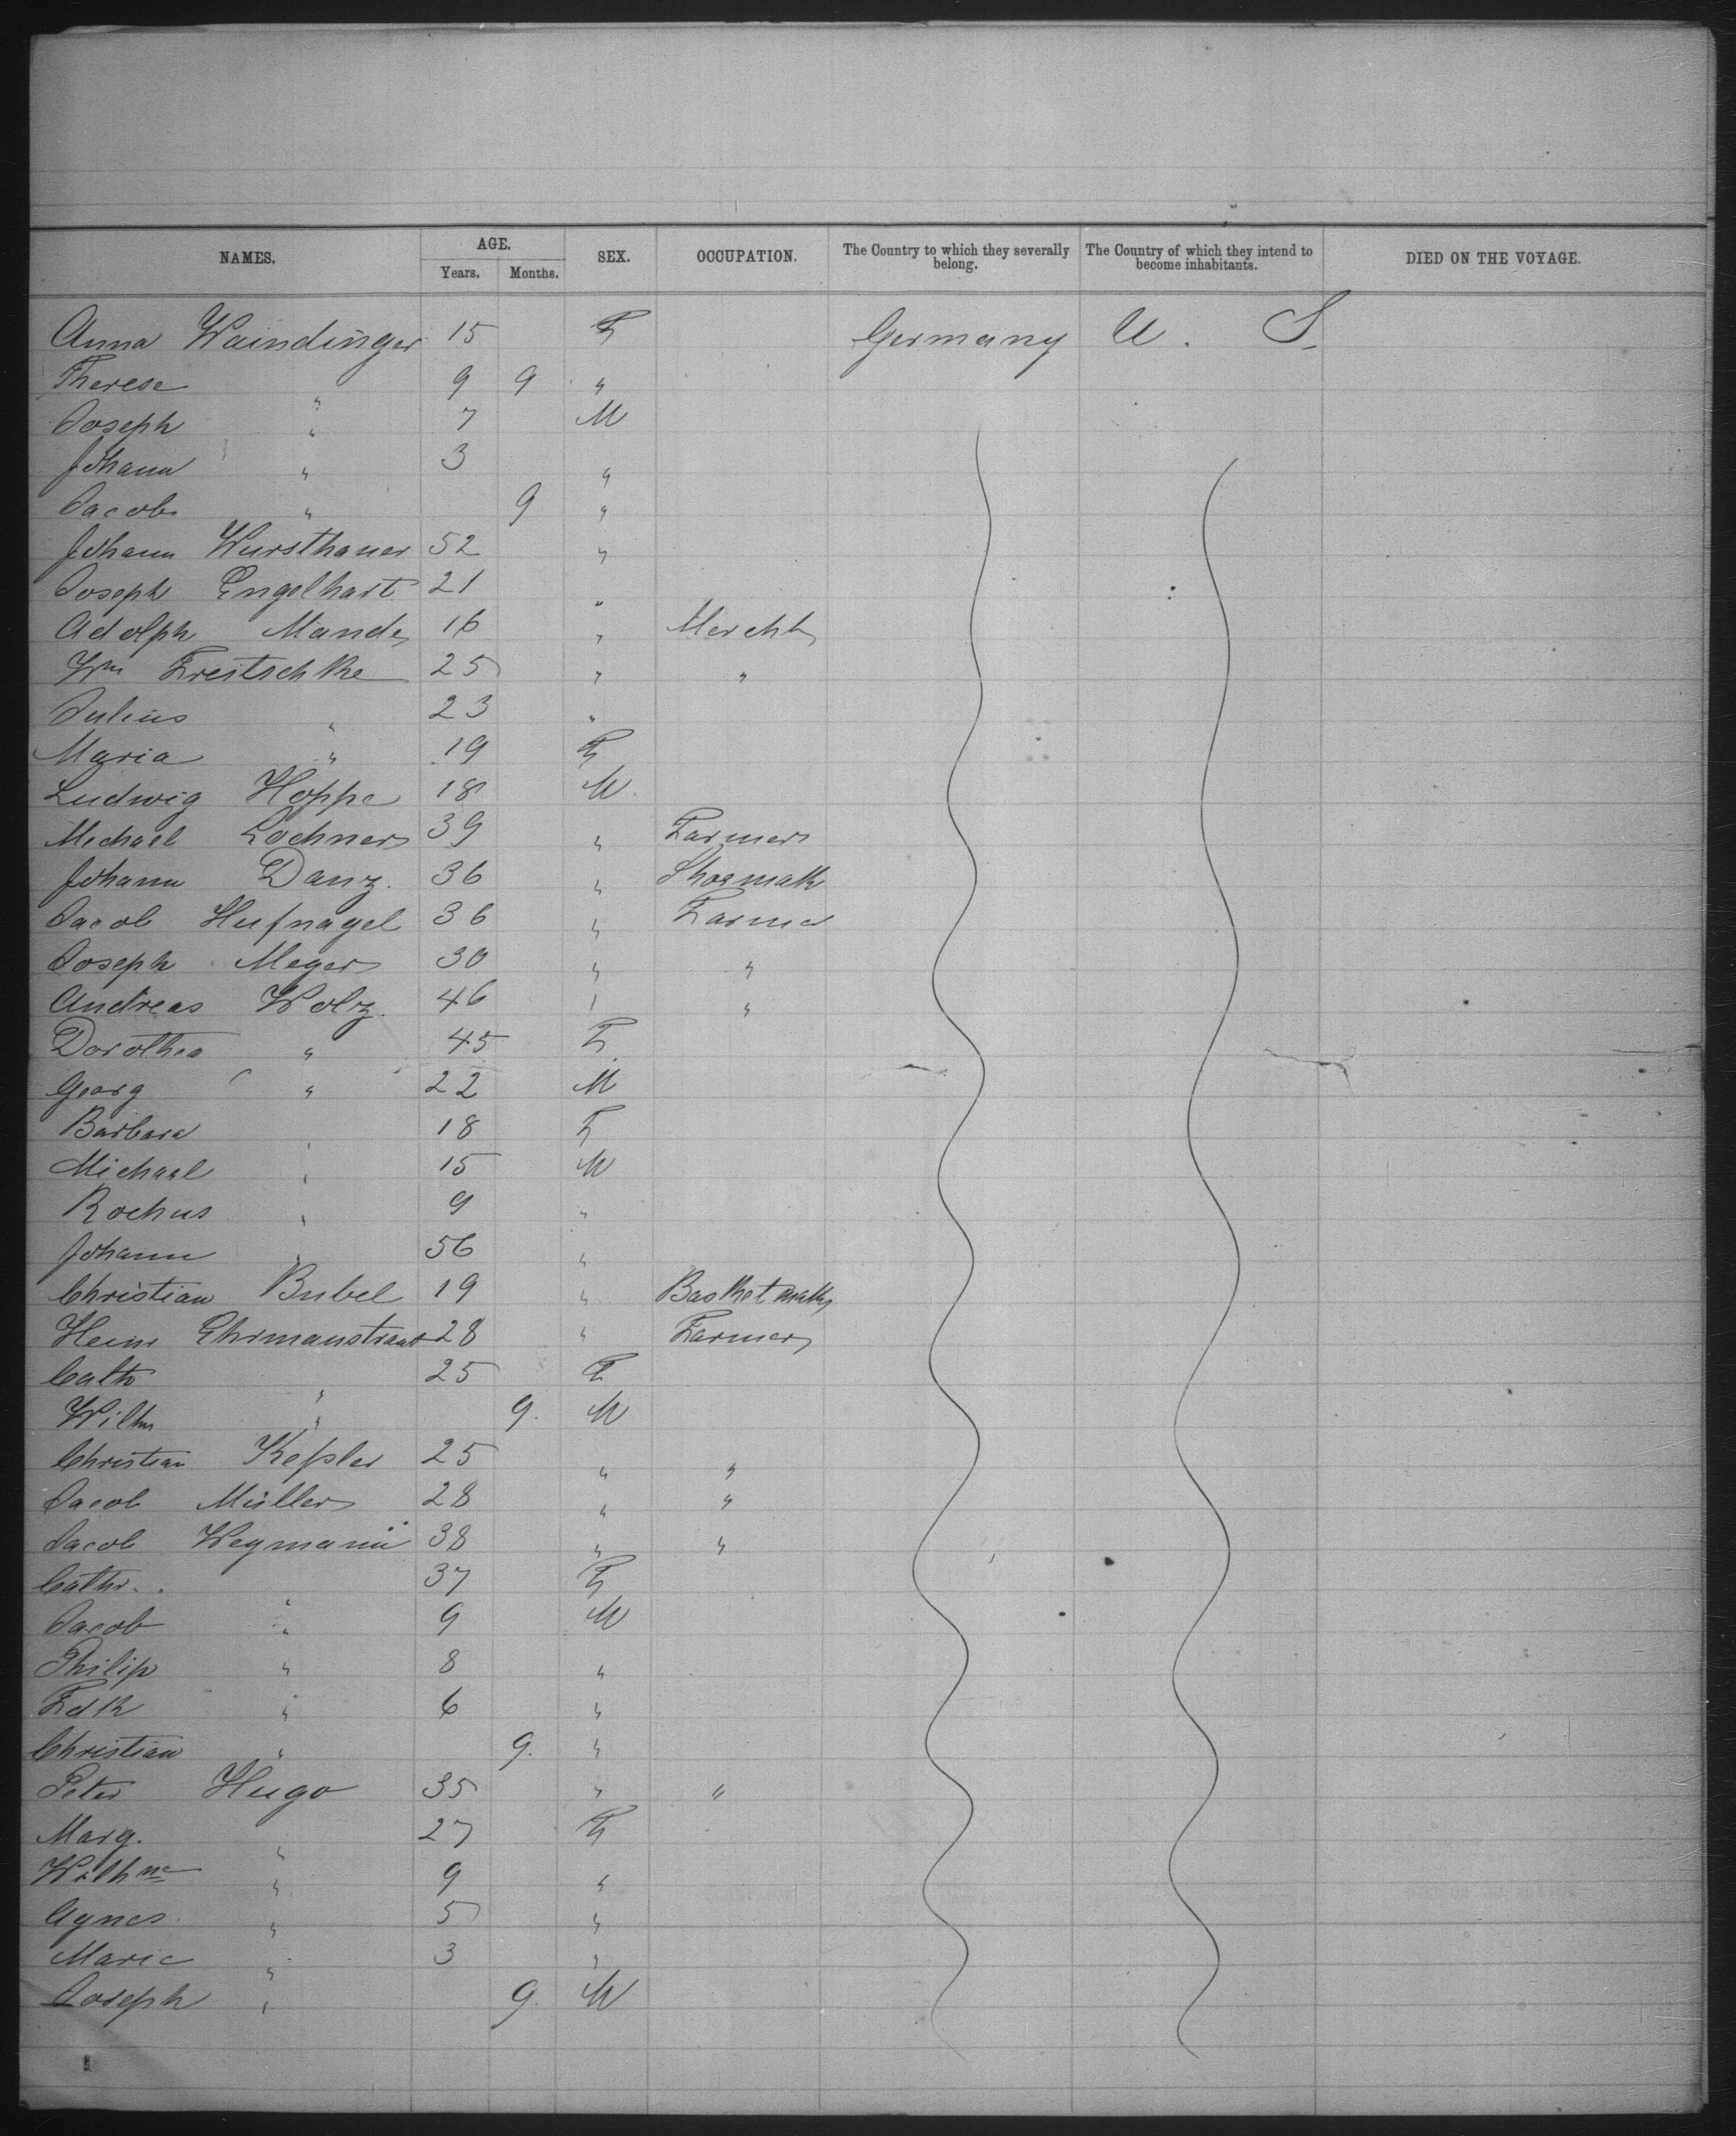 NAMES. AGE. SEX. OCCUPATION. The Country to which they severally belong. The Country of which they intend to become inhabitants. DIED ON THE VOYAGE.
Years. Months.
Anna Waindinger 15 F Germany U. S.
Therese " 9 9 "
Joseph " 7 M
Johann " 3 "
Jacob " 9 "
Johann Wursthauer 52 "
Joseph Engelhart 21 "
Adolph Mandes 16 " Mercht
Wm Freitschke 25 " "
Julius " 23 "
Maria " 19 F
Ludwig Hoppe 18 M
Michael Lochner 39 " Farmer
Johann Danz. 36 " Shoemak
Jacob Hufnagel 36 " Farmer
Joseph Meyer 30 " "
Andreas Wolz. 46 " "
Dorothea " 45 F
Georg " 22 M
Barbara " 18 F
Michael " 15 M
Rochus " 9 "
Johann " 56 "
Christian Bubel 19 " Basketmak
Heinr Ehrmanstraut 28 " Farmer
Cath " 25 F
Wilhm " 9. M
Christian Keſsler 25 " "
Jacob Müller 28 " "
Jacob Wegmann 38 " "
Cathr. " 37 F
Jacob " 9 M
Philip " 8 "
Fdk " 6 "
Christian " 9. "
Peter Hugo 35 " "
Marg. " 27 F
Wilhne " 9 "
Agnes " 5 "
Marie " 3 "
Joseph " 9. M